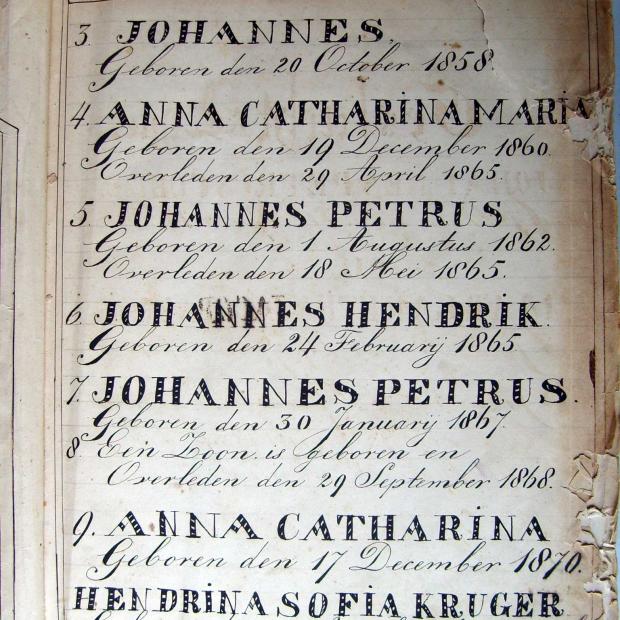 3. JOHANNES.
Geboren den 20 October 1858.
4. ANNA CATHARINA MARIA
Geboren den 19 December 1860.
Overleden den 29 April 1865.
5. JOHANNES PETRUS
Geboren den 1 Augustus 1862.
Overleden den 18 Mei 1865.
6. JOHANNES HENDRIK.
Geboren den 24 Februarij 1865
7. JOHANNES PETRUS.
Geboren den 30 Januarij 1867.
8. Ein Zoon is geboren en
Overleden den 29 September 1868.
9. ANNA CATHARINA
Geboren den 17 December 1870.
HENDRINA SOFIA KRUGER